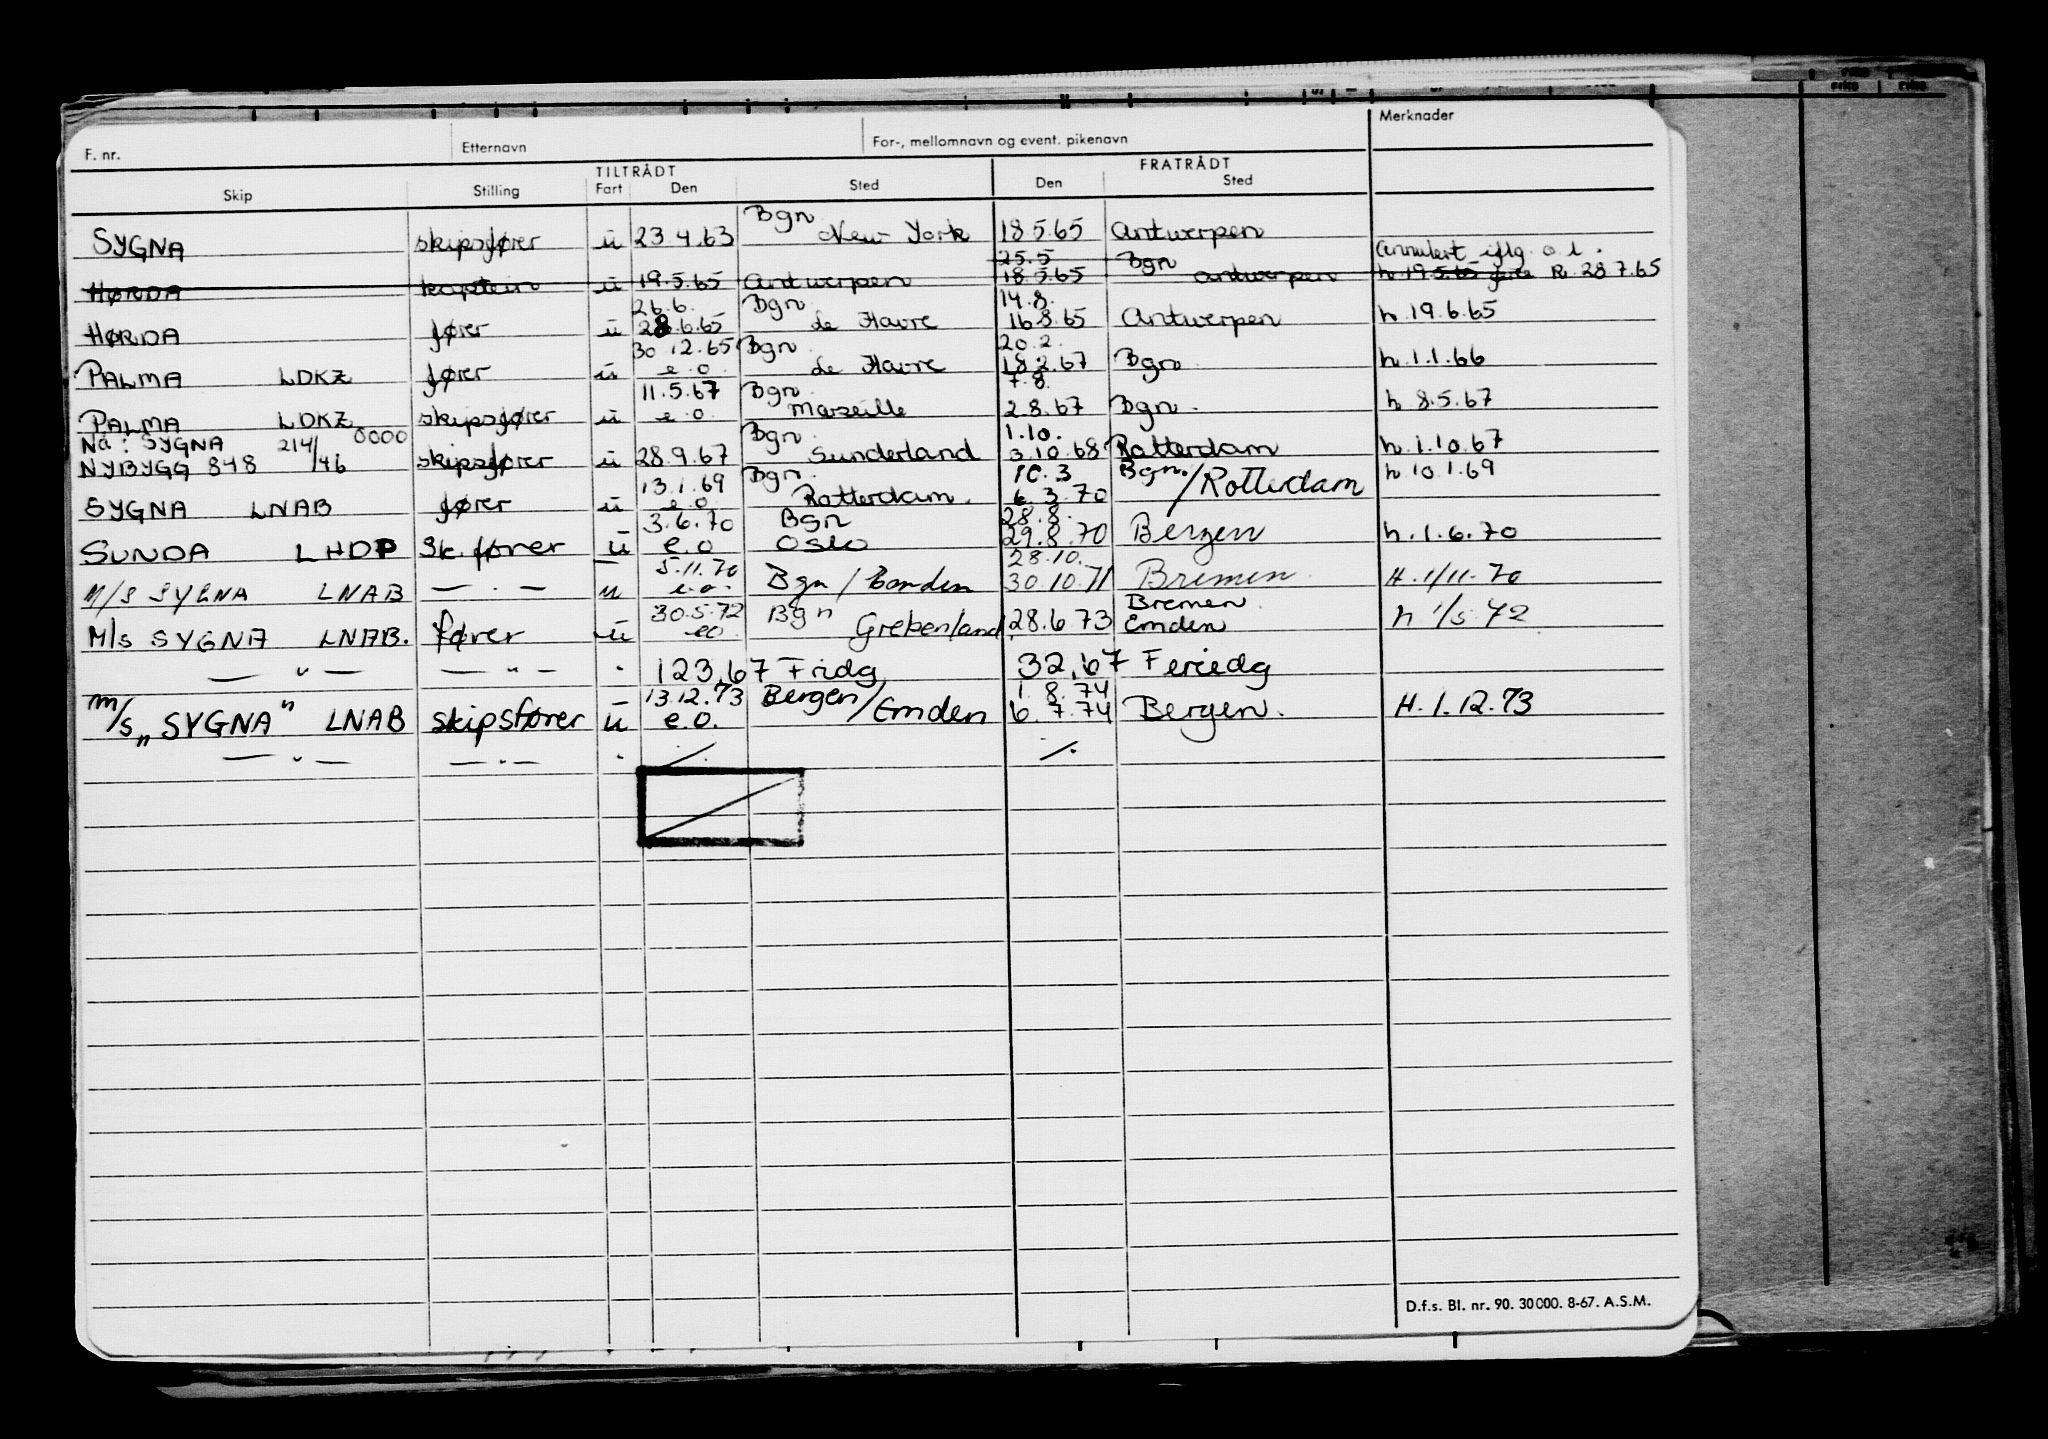 F. nr. Etternavn For-, mellomnavn og event. pikenavn Merknader
TILTRÅDT FRATRÅDT
Skip Stilling Fart Den Sted Den Sted
Bgn
SYGNA skipsfører u 23.4.63 New York 18.5.65 Antwerpen
25.5 Bgn Annulert iflg. o.l.
HØRDA kaptein u 19.5.65 Antwerpen 18.5.65 Antwerpen h. 19.5.65 R. 28.7.65
26.6. Bgn 14.8.
HØRDA fører u 28.6.65 le Havre 16.8.65 Antwerpen h. 19.6.65
30.12.65 Bgn 20.2.
PALMA LDKZ fører u e.o. le Havre 18.2.67 Bgn. h. 1.1.66
11.5.67 Bgn 7.8.
PALMA LDKZ skipsfører u e.o. Marseille 2.8.67 Bgn. h. 8.5.67
Nå: SYGNA 214/ 0000 Bgn. 1.10.
NYBYGG 848 /46 skipsfører u 28.9.67 Sunderland 3.10.68 Rotterdam h. 1.10.67
13.1.69 Bgn. 10.3 Bgn.
SYGNA LNAB fører u e.o. Rotterdam. 6.3.70 /Rotterdam h. 10.1.69
3.6.70 Bgn 28.8.
SUNDA LHDP Sk.fører u e.o Oslo 29.8.70 Bergen h. 1.6.70
5.11.70 28.10.
M/S SYGNA LNAB — . — u e.o. Bgn / Emden 30.10.71 Bremen. H. 1/11-70
30.5.72 Bgn Bremen.
M/s SYGNA LNAB. fører u eo Grekenland 28.6.73 Emden h 1/5 72
— " — — " — . 123,67 Fridg 32,67 Feriedg
13.12.73 1.8.74
m/s „SYGNA" LNAB skipsfører u e.o. Bergen/Emden 6.7.74 Bergen. H. 1.12.73
— " — — " — . ./. ./.
D.f.s. Bl. nr. 90. 30000. 8-67. A.S.M.